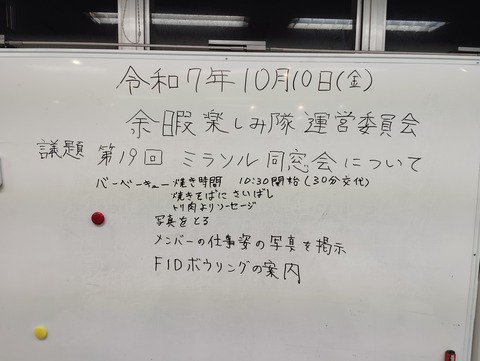 令和7年10月10日(金)
余暇楽しみ隊 運営委員会
議題 第19回 ミラソル同窓会について
バーベーキュー 焼き時間 10:30開始(30分交代)
焼きそばに さいばし
トリ肉よりソーセージ
写真をとる
メンバーの仕事姿の写真を掲示
FIDボウリングの案内